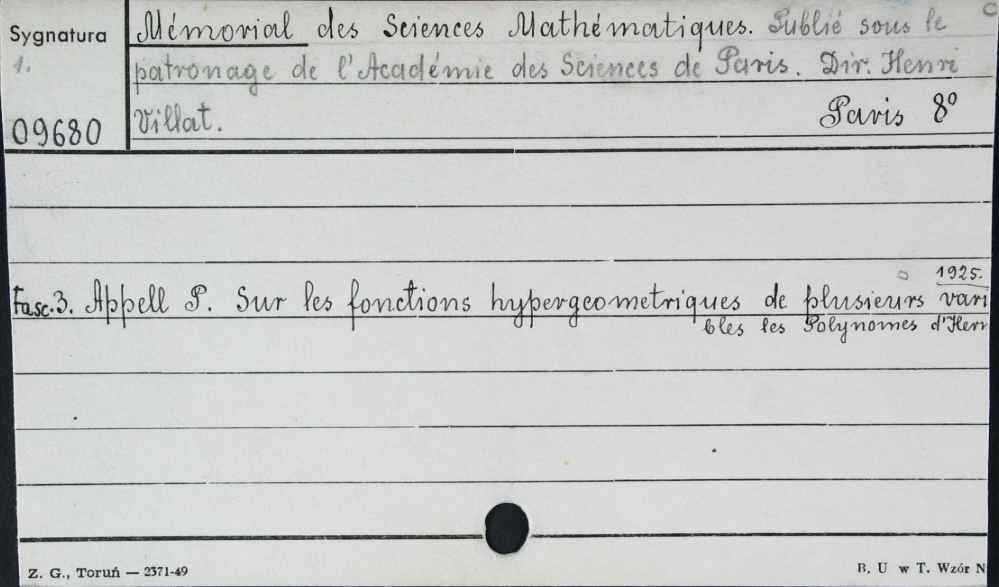 Sygnatura
1.
09680
Mémorial des Sciences Mathématiques. Publié sous le
patronage de l'Académie des Sciences de Paris. Dir. Henri
Villat.
Paris 8º
1925.
Fasc. 3. Appell P. Sur les fonctions hypergeometriques de plusieurs vari
bles les Polynomes d'Herm
Z. G., Toruń — 2371-49
B. U w T. Wzór N